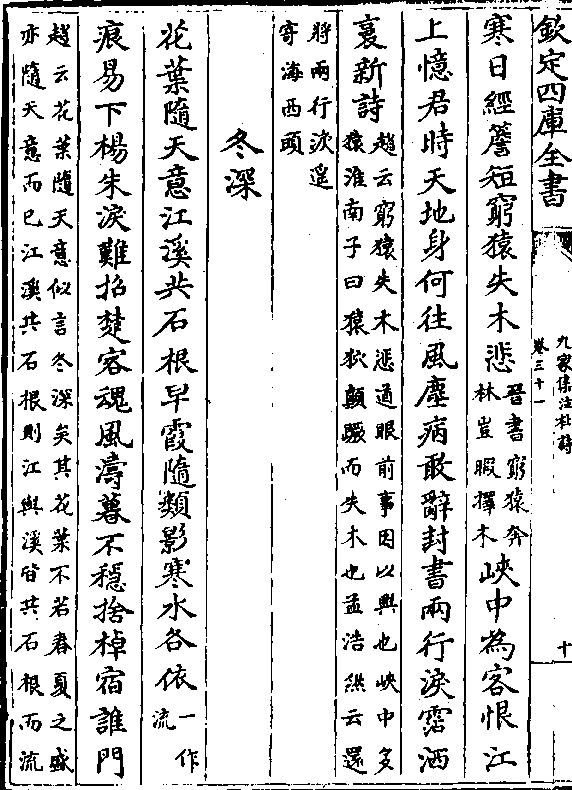 欽定四庫全書
九家集注杜詩
卷三十一
十
寒日經簷短窮猿失木悲
晉書窮猿奔
林豈暇擇木
峽中為客恨江
上憶君時天地身何往風塵病敢辭封書兩行淚霑洒
裛新詩
趙云窮猿失木悲道眼前事因以興也峽中多
猿淮南子曰猿狖顛蹶而失木也孟浩然云還
將兩行淚遥
寄海西頭
冬深
花葉隨天意江溪共石根早霞隨類影寒水各依
一作
流
痕易下楊朱淚難招楚客魂風濤暮不穩捨棹宿誰門
趙云花葉隨天意似言冬深矣其花葉不若春夏之盛
亦隨天意而已江溪共石根則江與溪皆共石根而流